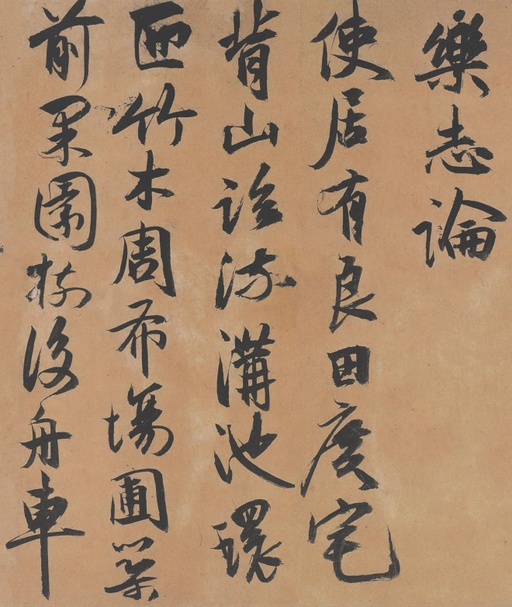 樂志論
使居有良田廣宅
背山臨流溝池環
匝竹木周布場圃築
前果園樹後舟車